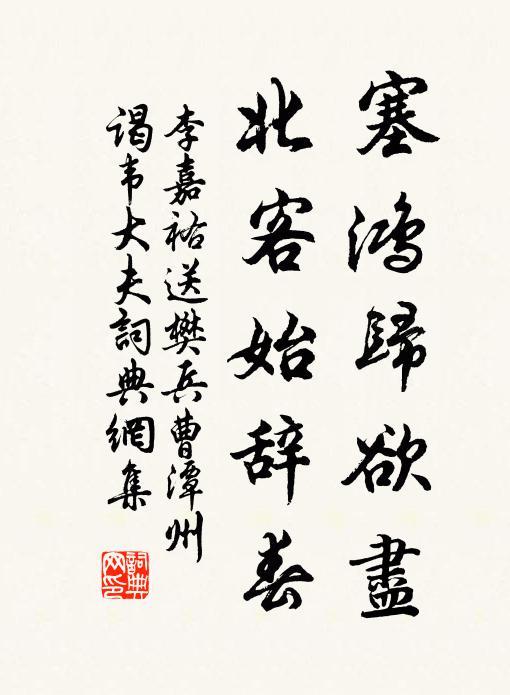 塞鸿歸欲盡
北客始辞春
李嘉祐送樊兵曹潭州
谒韦大夫詞典網集
詞典網印